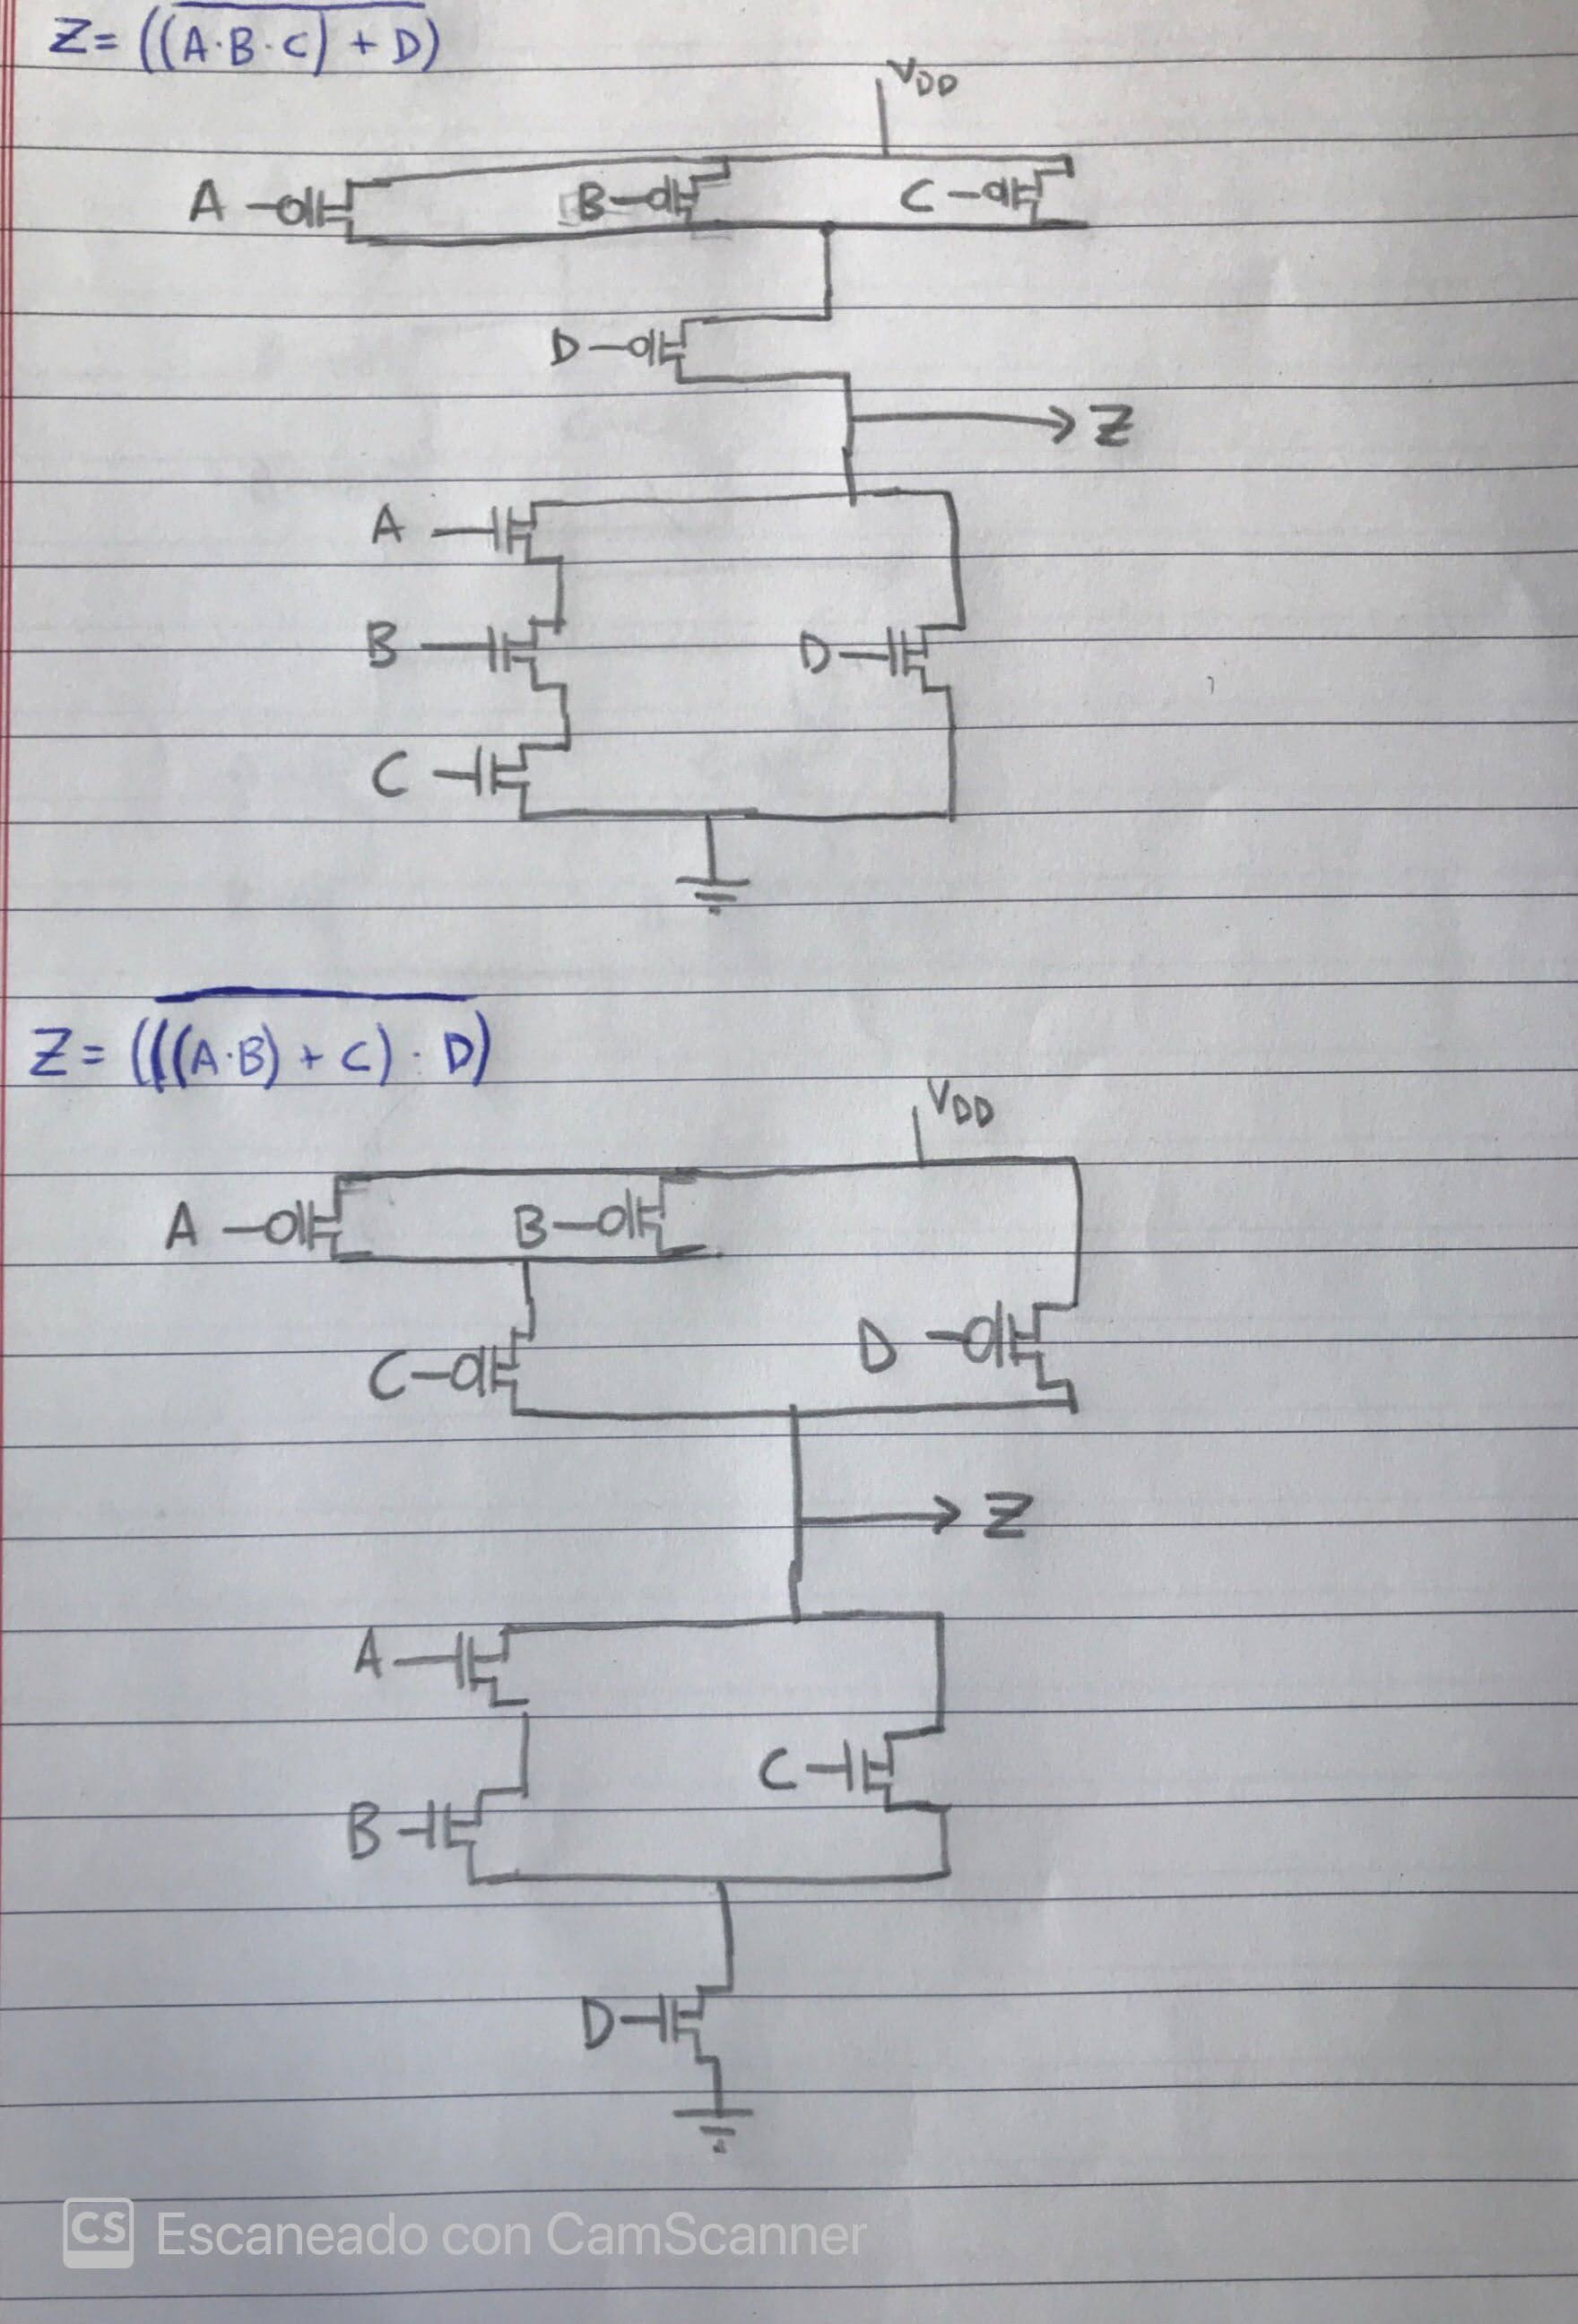 Z= ((A·B·C) + D)
VDD
A B C
D
Z
A
B D
C
Z= (((A·B) + C) · D)
VDD
A B
C D
Z
A
C
B
D
CS Escaneado con CamScanner